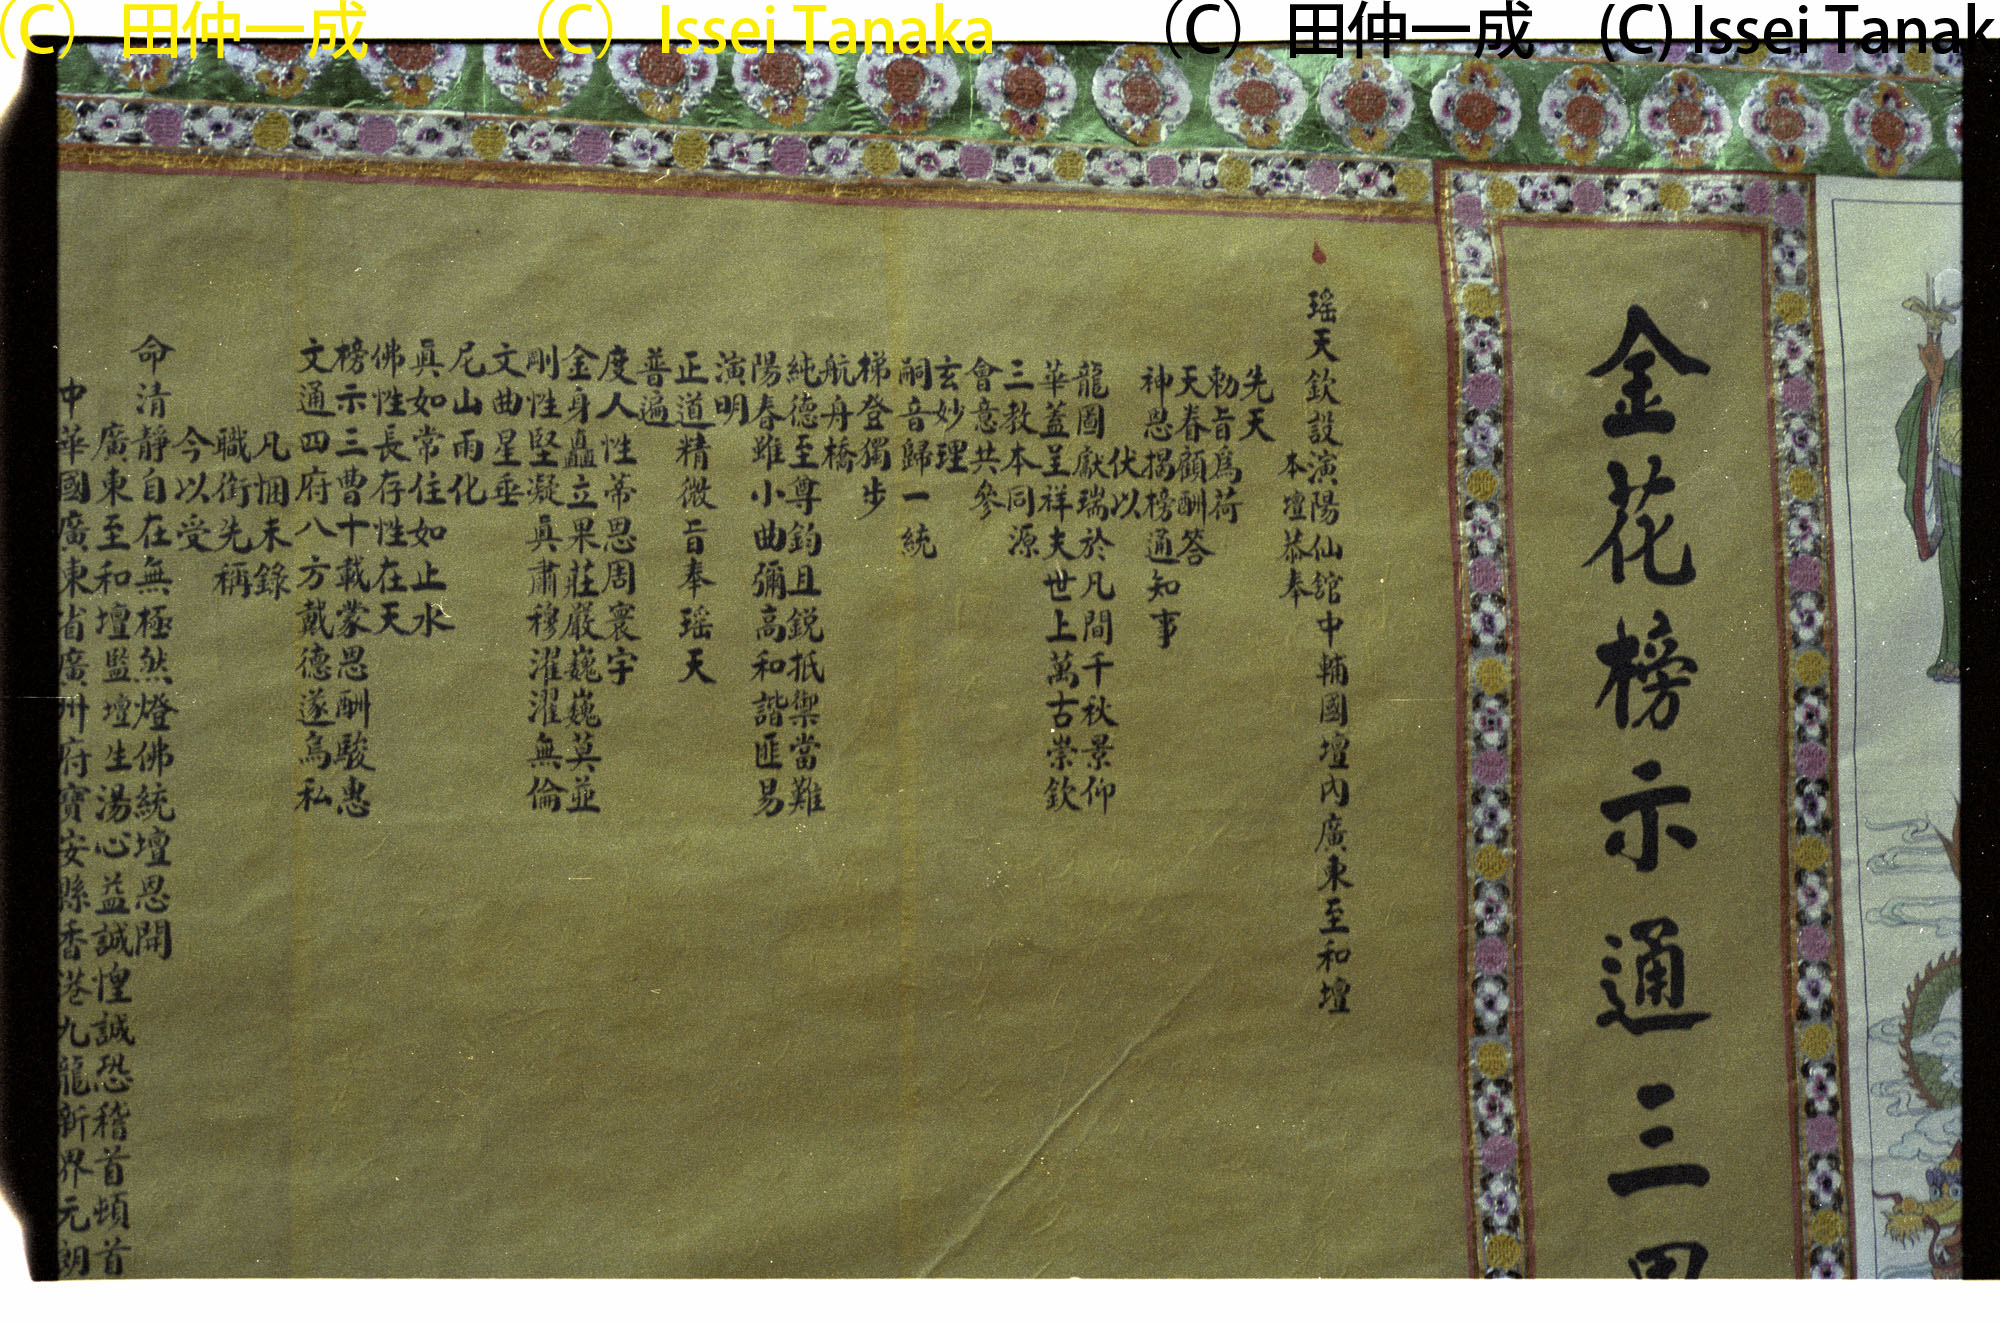 (C) 田仲一成
(C) Issei Tanaka
(C) 田仲一成
(C) Issei Tanak
金花榜示通三
瑶天欽設演陽仙舘中輔國壇內廣東至和壇
本壇恭奉
先天
勅旨爲荷
天春顧酬答
神恩揭榜通知事
伏以
龍圖獻瑞於凡間千秋景仰
華蓋呈祥夫世上萬古崇欽
三教本同源
會意共參
玄妙理
嗣音歸一統
梯登獨步
航舟橋
純德至尊鈞且鋭抵禦當難
陽春雖小曲彌高和諧匪易
演明
正道精微旨奉瑶天
普遍
度人性蒂恩周寰宇
金身矗立果莊嚴巍巍莫並
剛性堅凝眞肅穆濯濯無倫
文曲星垂
尼山雨化
眞如常住如止水
佛性長存性在天
榜示三曹十載蒙恩酬駿惠
文通四府八方戴德遂烏私
凡悃未錄
職銜先稱
今以受
命清靜自在無極然燈佛統壇恩開
廣東至和壇監壇生湯心益誠惶誠恐稽首頓首
中華國廣東省廣州府寶安縣香港九龍新界元朗